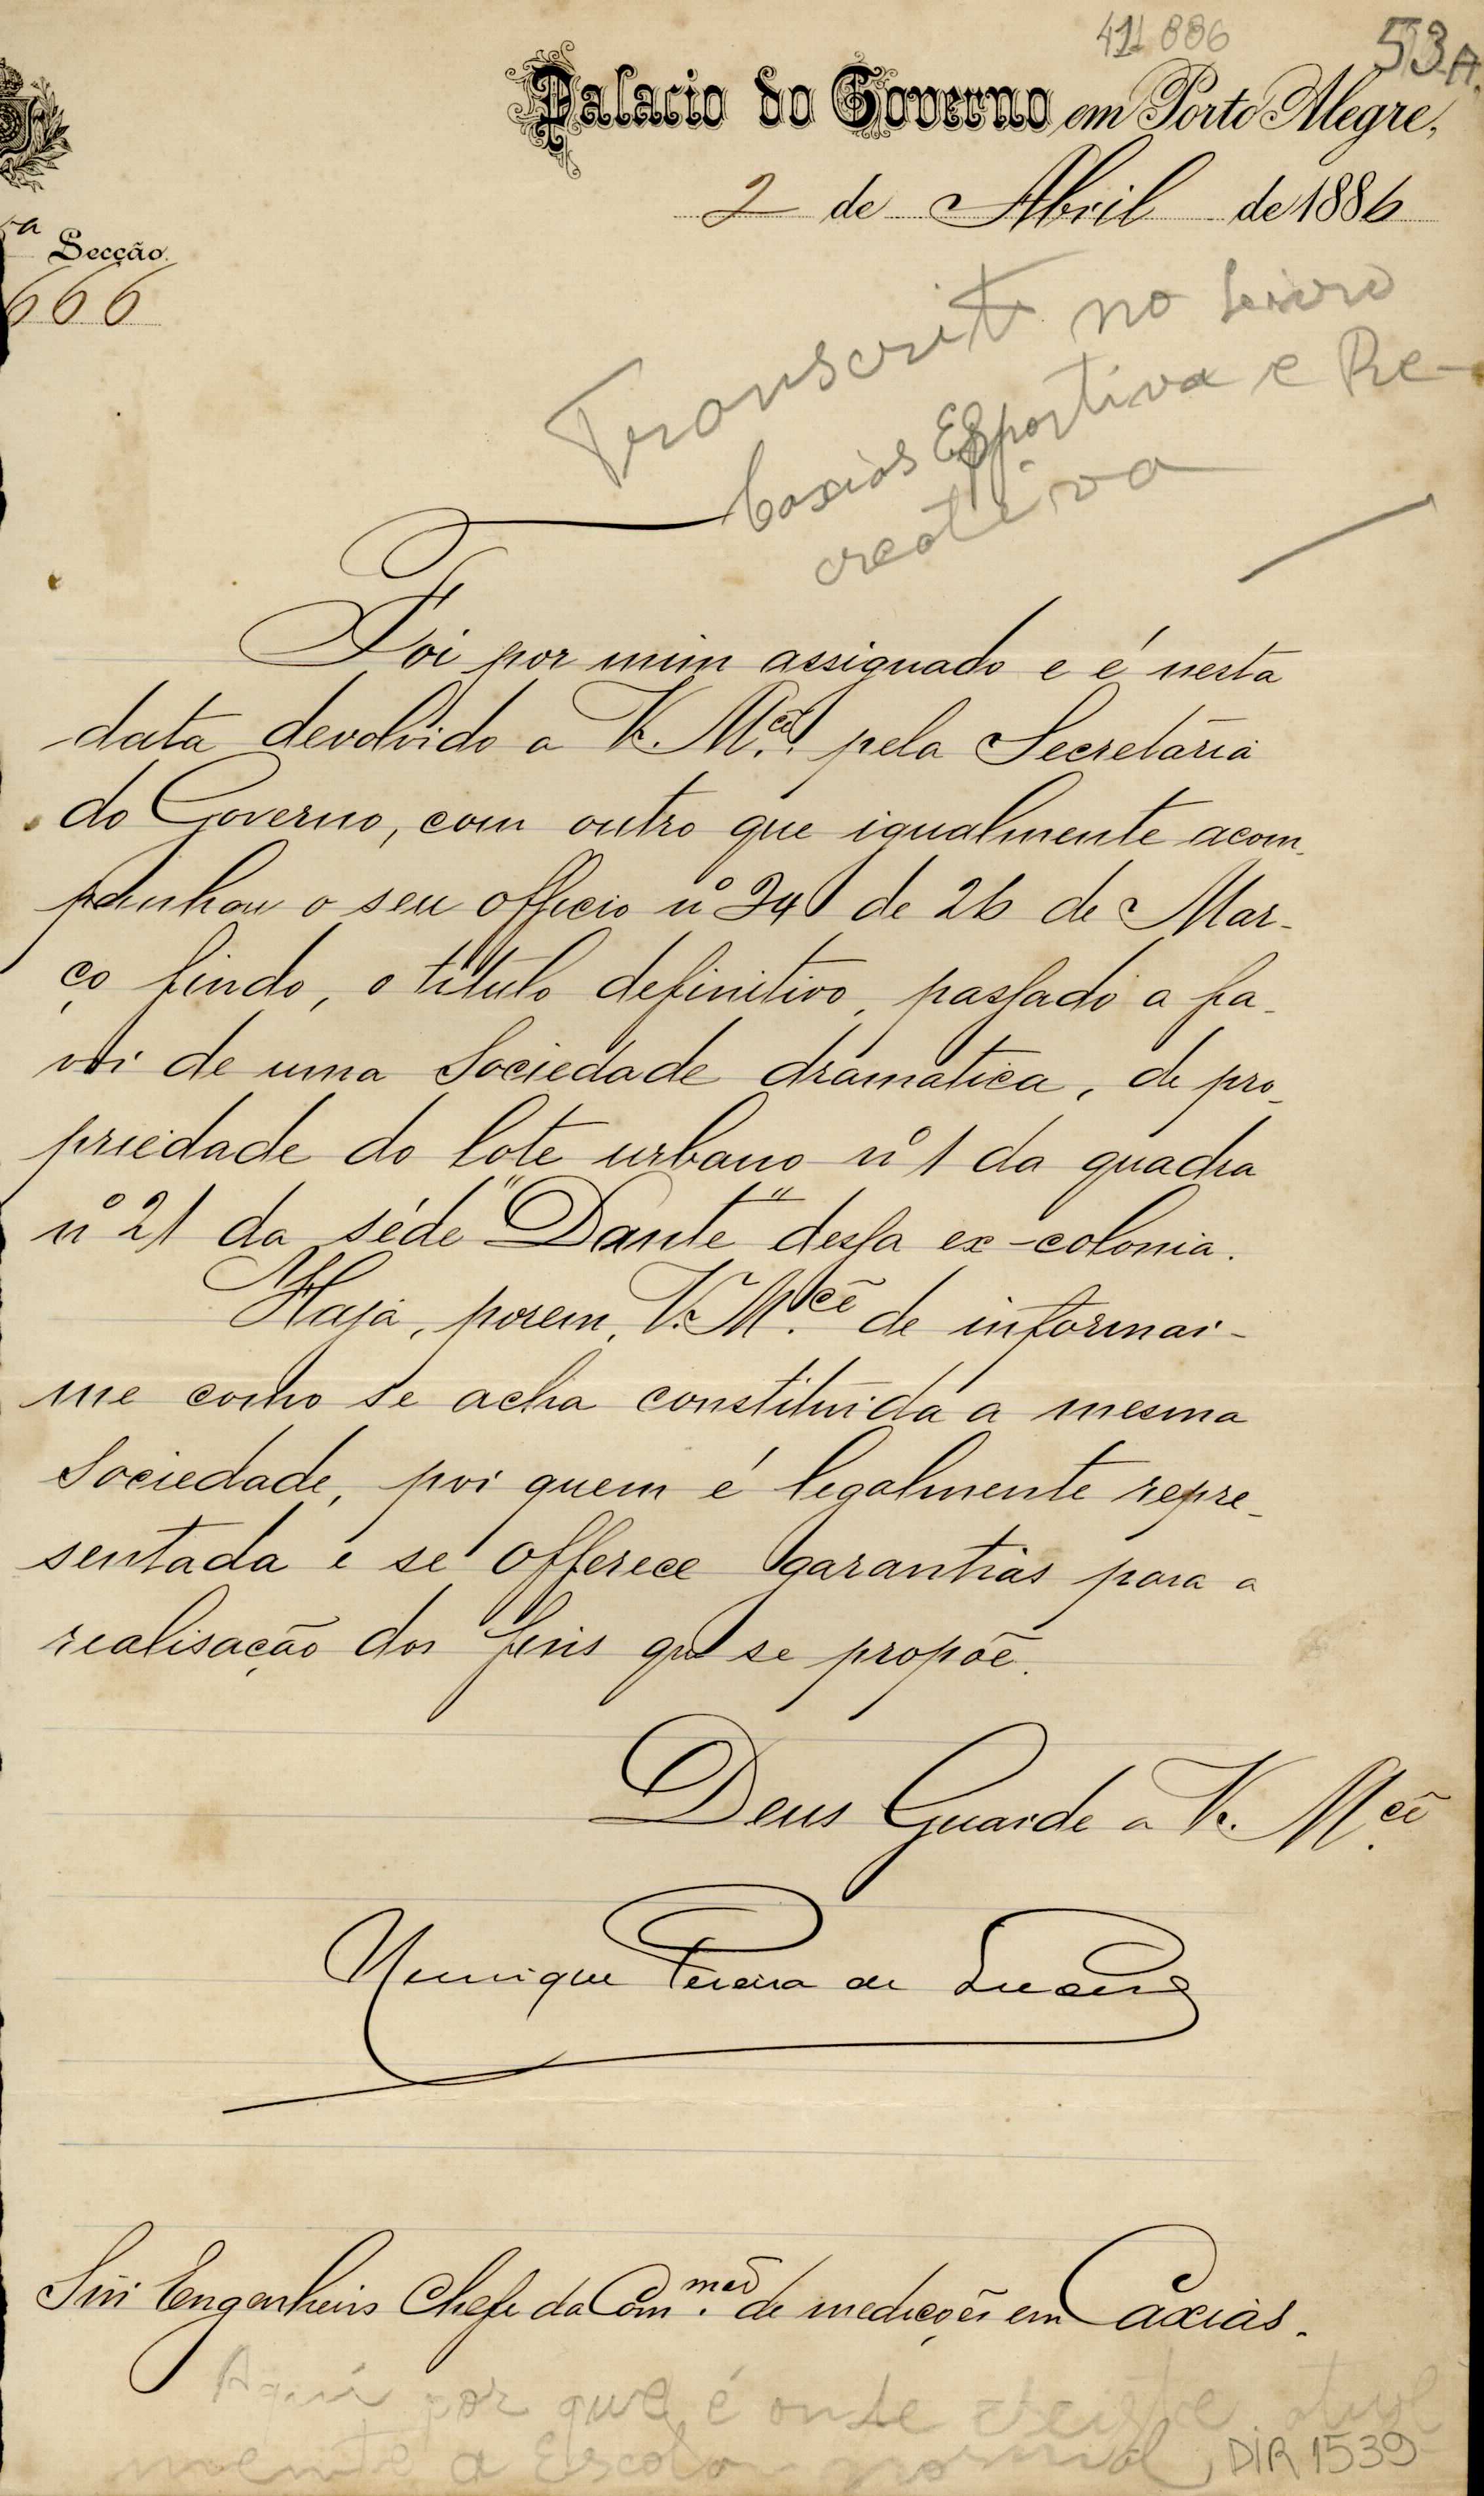 411 886
53A.
Palacio do Governo em Porto Alegre,
2 de Abril de 1886
ª Secção
666
Transcrito no Livro
Caxias Esportiva e Re-
creativa
Foi por mim assignado e é nesta
data devolvido a V. M.cê pela Secretaria
do Governo, com outro que igualmente acom-
panhou o seu officio nº 24 de 26 de Mar-
ço findo, o titulo definitivo, passado a fa-
vor de uma Sociedade dramatica, de pro-
priedade do lote urbano nº 1 da quadra
nº 21 da séde "Dante" dessa ex-colonia.
Haja, porem, V. M.cê de informar-
me como se acha constituida a mesma
Sociedade, por quem é legalmente repre-
sentada e se offerece garantias para a
realisação dos fins que se propõe.
Deus Guarde a V. M.cê
Henrique Pereira de Lucena
Snr Engenheiro Chefe da Com.mão de medições em Caxias.
Aqui por que é onde existe atual
mente a Escola normal
DIR 1539